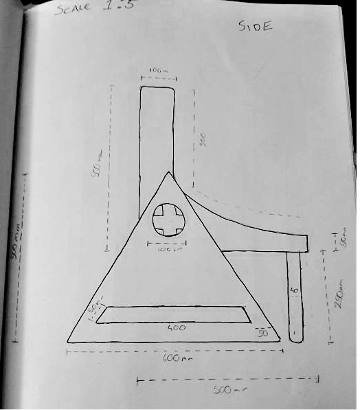 SCALE 1:5
SIDE
100mm
500mm
300
50mm
100mm
250mm
400
50
600mm
500mm